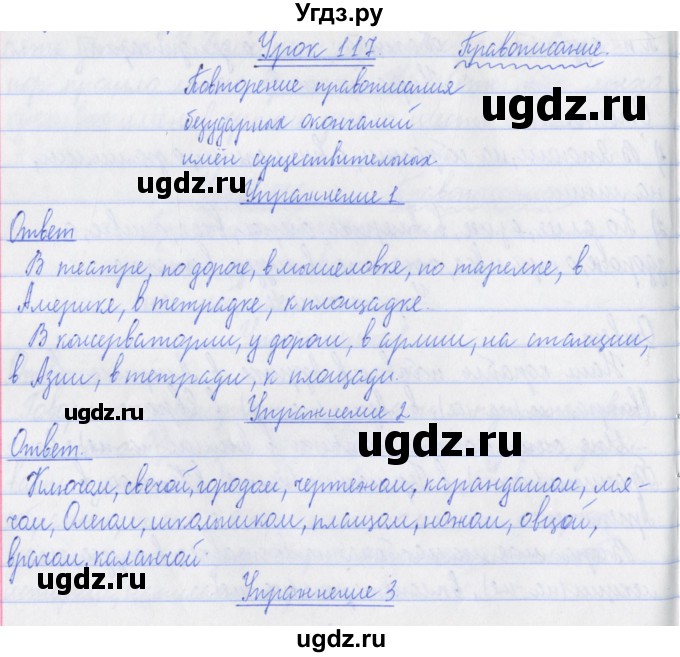 Угдз.ру
Урок 117. Правописание.
Повторение правописания
ugdz.ru
безударных окончаний
имён существительных.
ugdz.ru
Упражнение 1
Ответ
В театре, по дороге, в мышеловке, по тарелке, в
Америке, в тетрадке, к площадке.
ugdz.ru
В консерватории, у дороги, в армии, на станции,
в Азии, в тетради, к площади.
ugdz.ru
Упражнение 2
ugdz.ru
Ответ.
Ключом, свечой, городом, чертежом, карандашом, мя-
чом, Олегом, школьником, плащом, ножом, овцой,
врачом, каланчой.
ugdz.ru
ugdz.ru
Упражнение 3
ugdz.ru